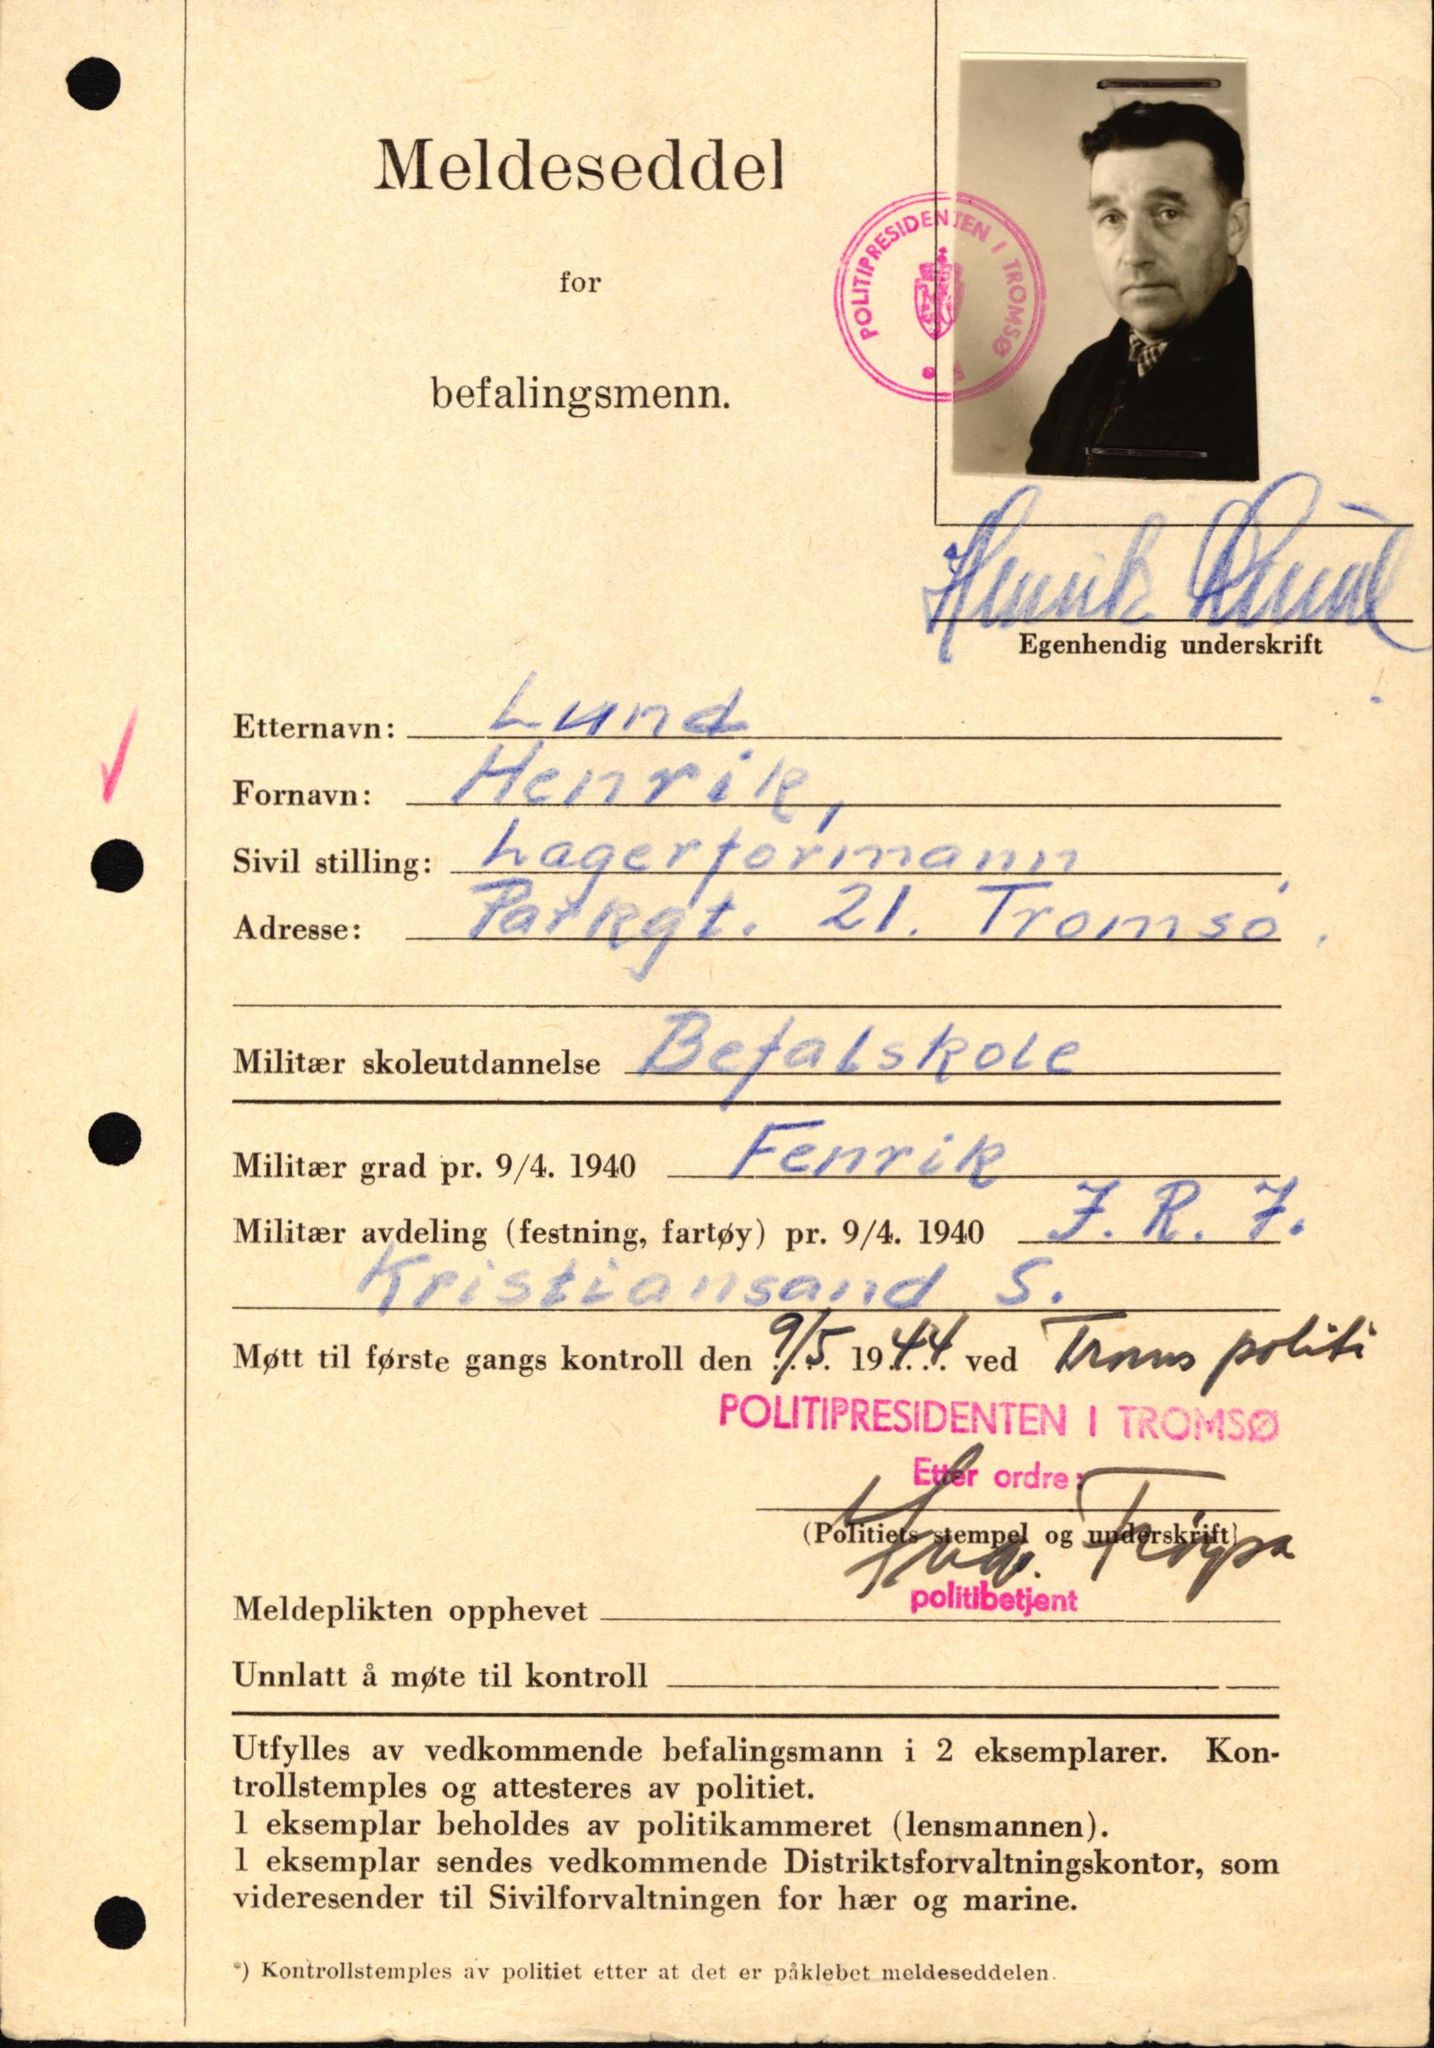 Meldeseddel
for
befalingsmenn.
POLITIPRESIDENTEN I TROMSØ
Henrik Lund
Egenhendig underskrift
Etternavn: Lund
Fornavn: Henrik,
Sivil stilling: Lagerformann
Adresse: Parkgt. 21. Tromsø.
Militær skoleutdannelse Befalskole
Militær grad pr. 9/4. 1940 Fenrik
Militær avdeling (festning, fartøy) pr. 9/4. 1940 I. R. 7.
Kristiansand S.
Møtt til første gangs kontroll den 9/5 1944 ved Troms politi
POLITIPRESIDENTEN I TROMSØ
Etter ordre:
(Politiets stempel og underskrift)
politibetjent
Meldeplikten opphevet
Unnlatt å møte til kontroll
Utfylles av vedkommende befalingsmann i 2 eksemplarer. Kon-
trollstemples og attesteres av politiet.
1 eksemplar beholdes av politikammeret (lensmannen).
1 eksemplar sendes vedkommende Distriktsforvaltningskontor, som
videresender til Sivilforvaltningen for hær og marine.
*) Kontrollstemples av politiet etter at det er påklebet meldeseddelen.